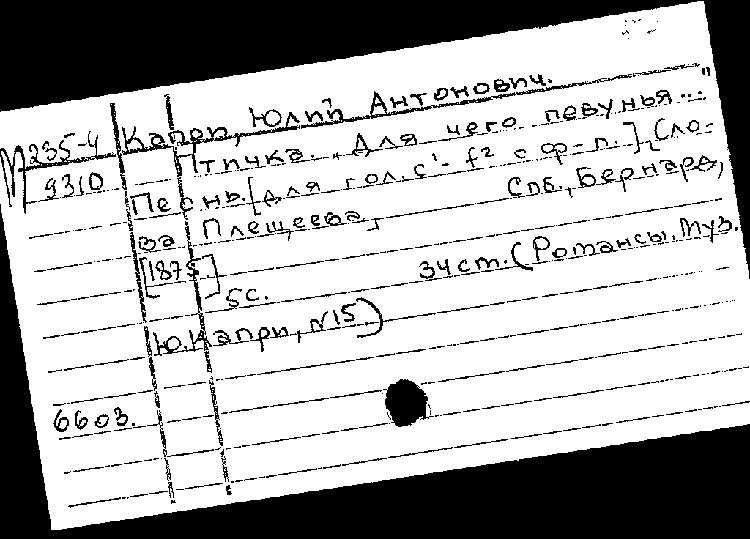 М 235-4
9310
Капри, Юлий Антонович.
Птичка. „Для чего певунья..."
Песнь. [Для гол. c¹- f² с ф-п.], Сло-
ва Плещеева, Спб., Бернард,
[1875]
5с. 34 ст. (Романсы. Муз.
Ю. Капри, №15)
6603.